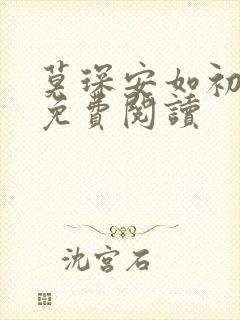 莫琛安如初
免費閱讀
沈宮石